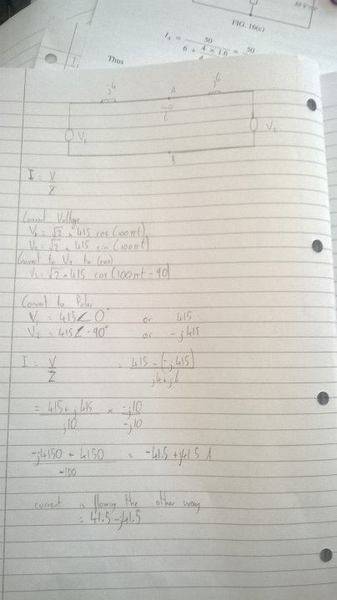 FIG. 16(c)
I₁ = 50 / (6 + 4 × 1.6) = 50
Thus
j4 A j6
I
V₁ V₂
B
I = V/Z
Convert Voltage
V₁ = √2 × 415 cos(100πt)
V₂ = √2 × 415 sin(100πt)
Convert to V₂ to cos
V₂ = √2 × 415 cos(100πt - 90)
Convert to Polar
V₁ = 415∠0° or 415
V₂ = 415∠-90° or -j415
I = V/Z = (415 - (-j415)) / (j4 + j6)
= (415 + j415) / j10 × -j10 / -j10
(-j4150 + 4150) / -100 = -41.5 + j41.5 A
current is flowing the other way
= 41.5 - j41.5